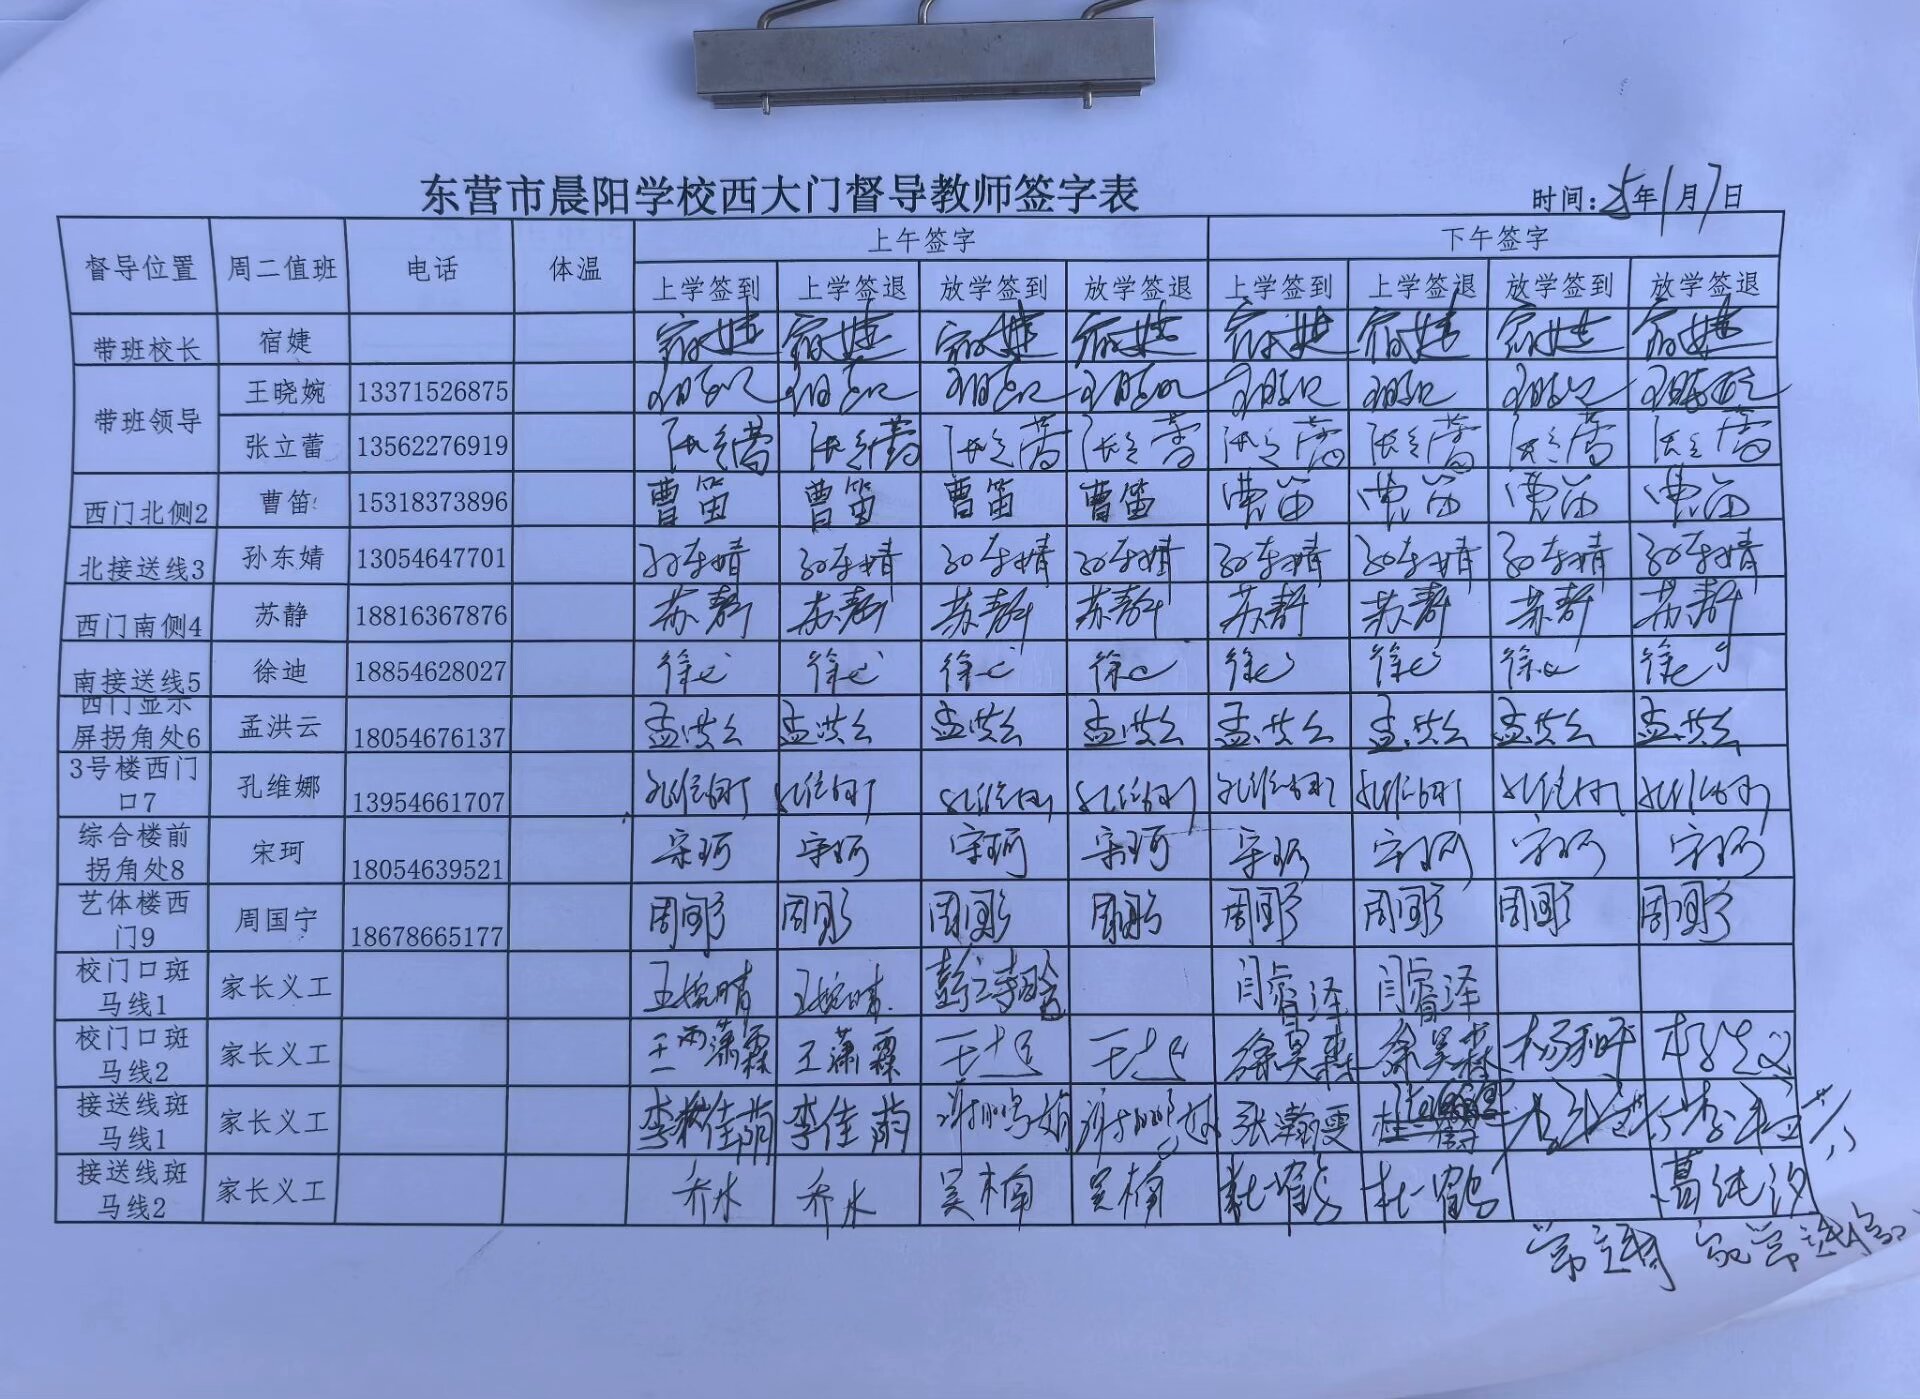 东营市晨阳学校西大门督导教师签字表
时间：25年1月7日
督导位置 周二值班 电话 体温 上午签字 下午签字
上学签到 上学签退 放学签到 放学签退 上学签到 上学签退 放学签到 放学签退
带班校长 宿婕 宿婕 宿婕 宿婕 宿婕 宿婕 宿婕 宿婕 宿婕
带班领导 王晓婉 13371526875 王晓婉 王晓婉 王晓婉 王晓婉 王晓婉 王晓婉 王晓婉 王晓婉
张立蕾 13562276919 张立蕾 张立蕾 张立蕾 张立蕾 张立蕾 张立蕾 张立蕾 张立蕾
西门北侧2 曹笛 15318373896 曹笛 曹笛 曹笛 曹笛 曹笛 曹笛 曹笛 曹笛
北接送线3 孙东婧 13054647701 孙东婧 孙东婧 孙东婧 孙东婧 孙东婧 孙东婧 孙东婧 孙东婧
西门南侧4 苏静 18816367876 苏静 苏静 苏静 苏静 苏静 苏静 苏静 苏静
南接送线5 徐迪 18854628027 徐迪 徐迪 徐迪 徐迪 徐迪 徐迪 徐迪 徐迪
西门显示
屏拐角处6 孟洪云 18054676137 孟洪云 孟洪云 孟洪云 孟洪云 孟洪云 孟洪云 孟洪云 孟洪云
3号楼西门
口7 孔维娜 13954661707 孔维娜 孔维娜 孔维娜 孔维娜 孔维娜 孔维娜 孔维娜 孔维娜
综合楼前
拐角处8 宋珂 18054639521 宋珂 宋珂 宋珂 宋珂 宋珂 宋珂 宋珂 宋珂
艺体楼西
门9 周国宁 18678665177 周国宁 周国宁 周国宁 周国宁 周国宁 周国宁 周国宁 周国宁
校门口斑
马线1 家长义工 王婉晴 王婉晴 闫睿泽 闫睿泽
校门口斑
马线2 家长义工 王潇霖 王潇霖 王超 王超 徐昊森 徐昊森
接送线斑
马线1 家长义工 李佳萌 李佳萌 张瀚雯
接送线斑
马线2 家长义工 乔水 乔水 吴楠 吴楠 杜一鹤 杜一鹤 葛纯汐